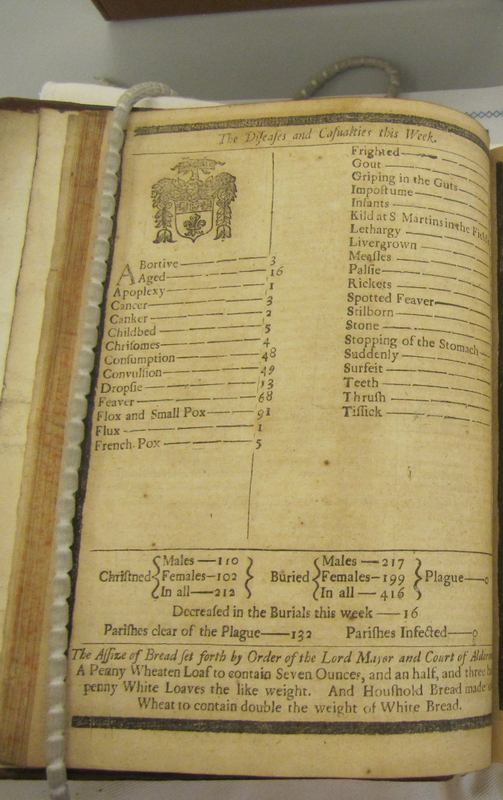 The Diseases and Casualties this Week.
ABortive — 3
Aged — 16
Apoplexy — 1
Cancer — 3
Canker — 2
Childbed — 5
Chrisomes — 4
Consumption — 48
Convulsion — 49
Dropsie — 13
Feaver — 68
Flox and Small Pox — 91
Flux — 1
French Pox — 5
Frighted —
Gout —
Griping in the Guts —
Impostume —
Infants —
Kild at S Martins in the Fields
Lethargy —
Livergrown —
Measles —
Palsie —
Rickets —
Spotted Feaver —
Stilborn —
Stone —
Stopping of the Stomach —
Suddenly —
Surfeit —
Teeth —
Thrush —
Tissick —
Males — 110 Males — 217
Christned Females — 102 Buried Females — 199 Plague — 0
In all — 212 In all — 416
Decreased in the Burials this week — 16
Parishes clear of the Plague — 132 Parishes Infected — 0
The Assize of Bread set forth by Order of the Lord Mayor and Court of
A Penny Wheaten Loaf to contain Seven Ounces, and an half, and three
penny White Loaves the like weight. And Houshold Bread made
Wheat to contain double the weight of White Bread.